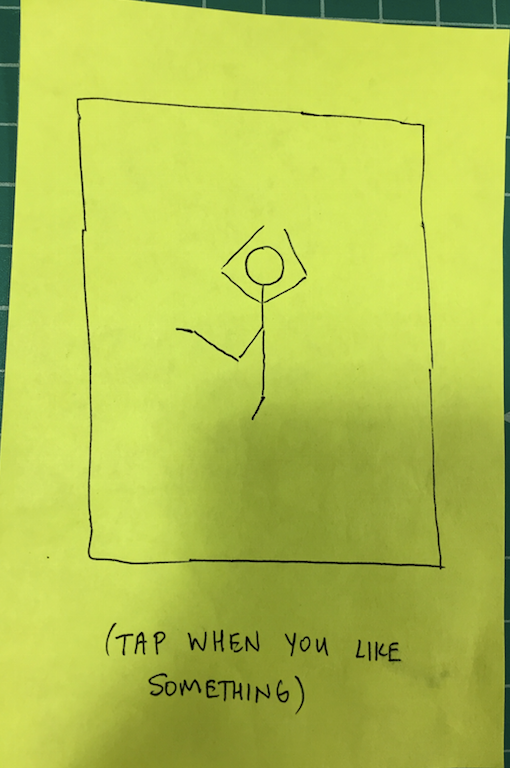 (TAP WHEN YOU LIKE
SOMETHING)